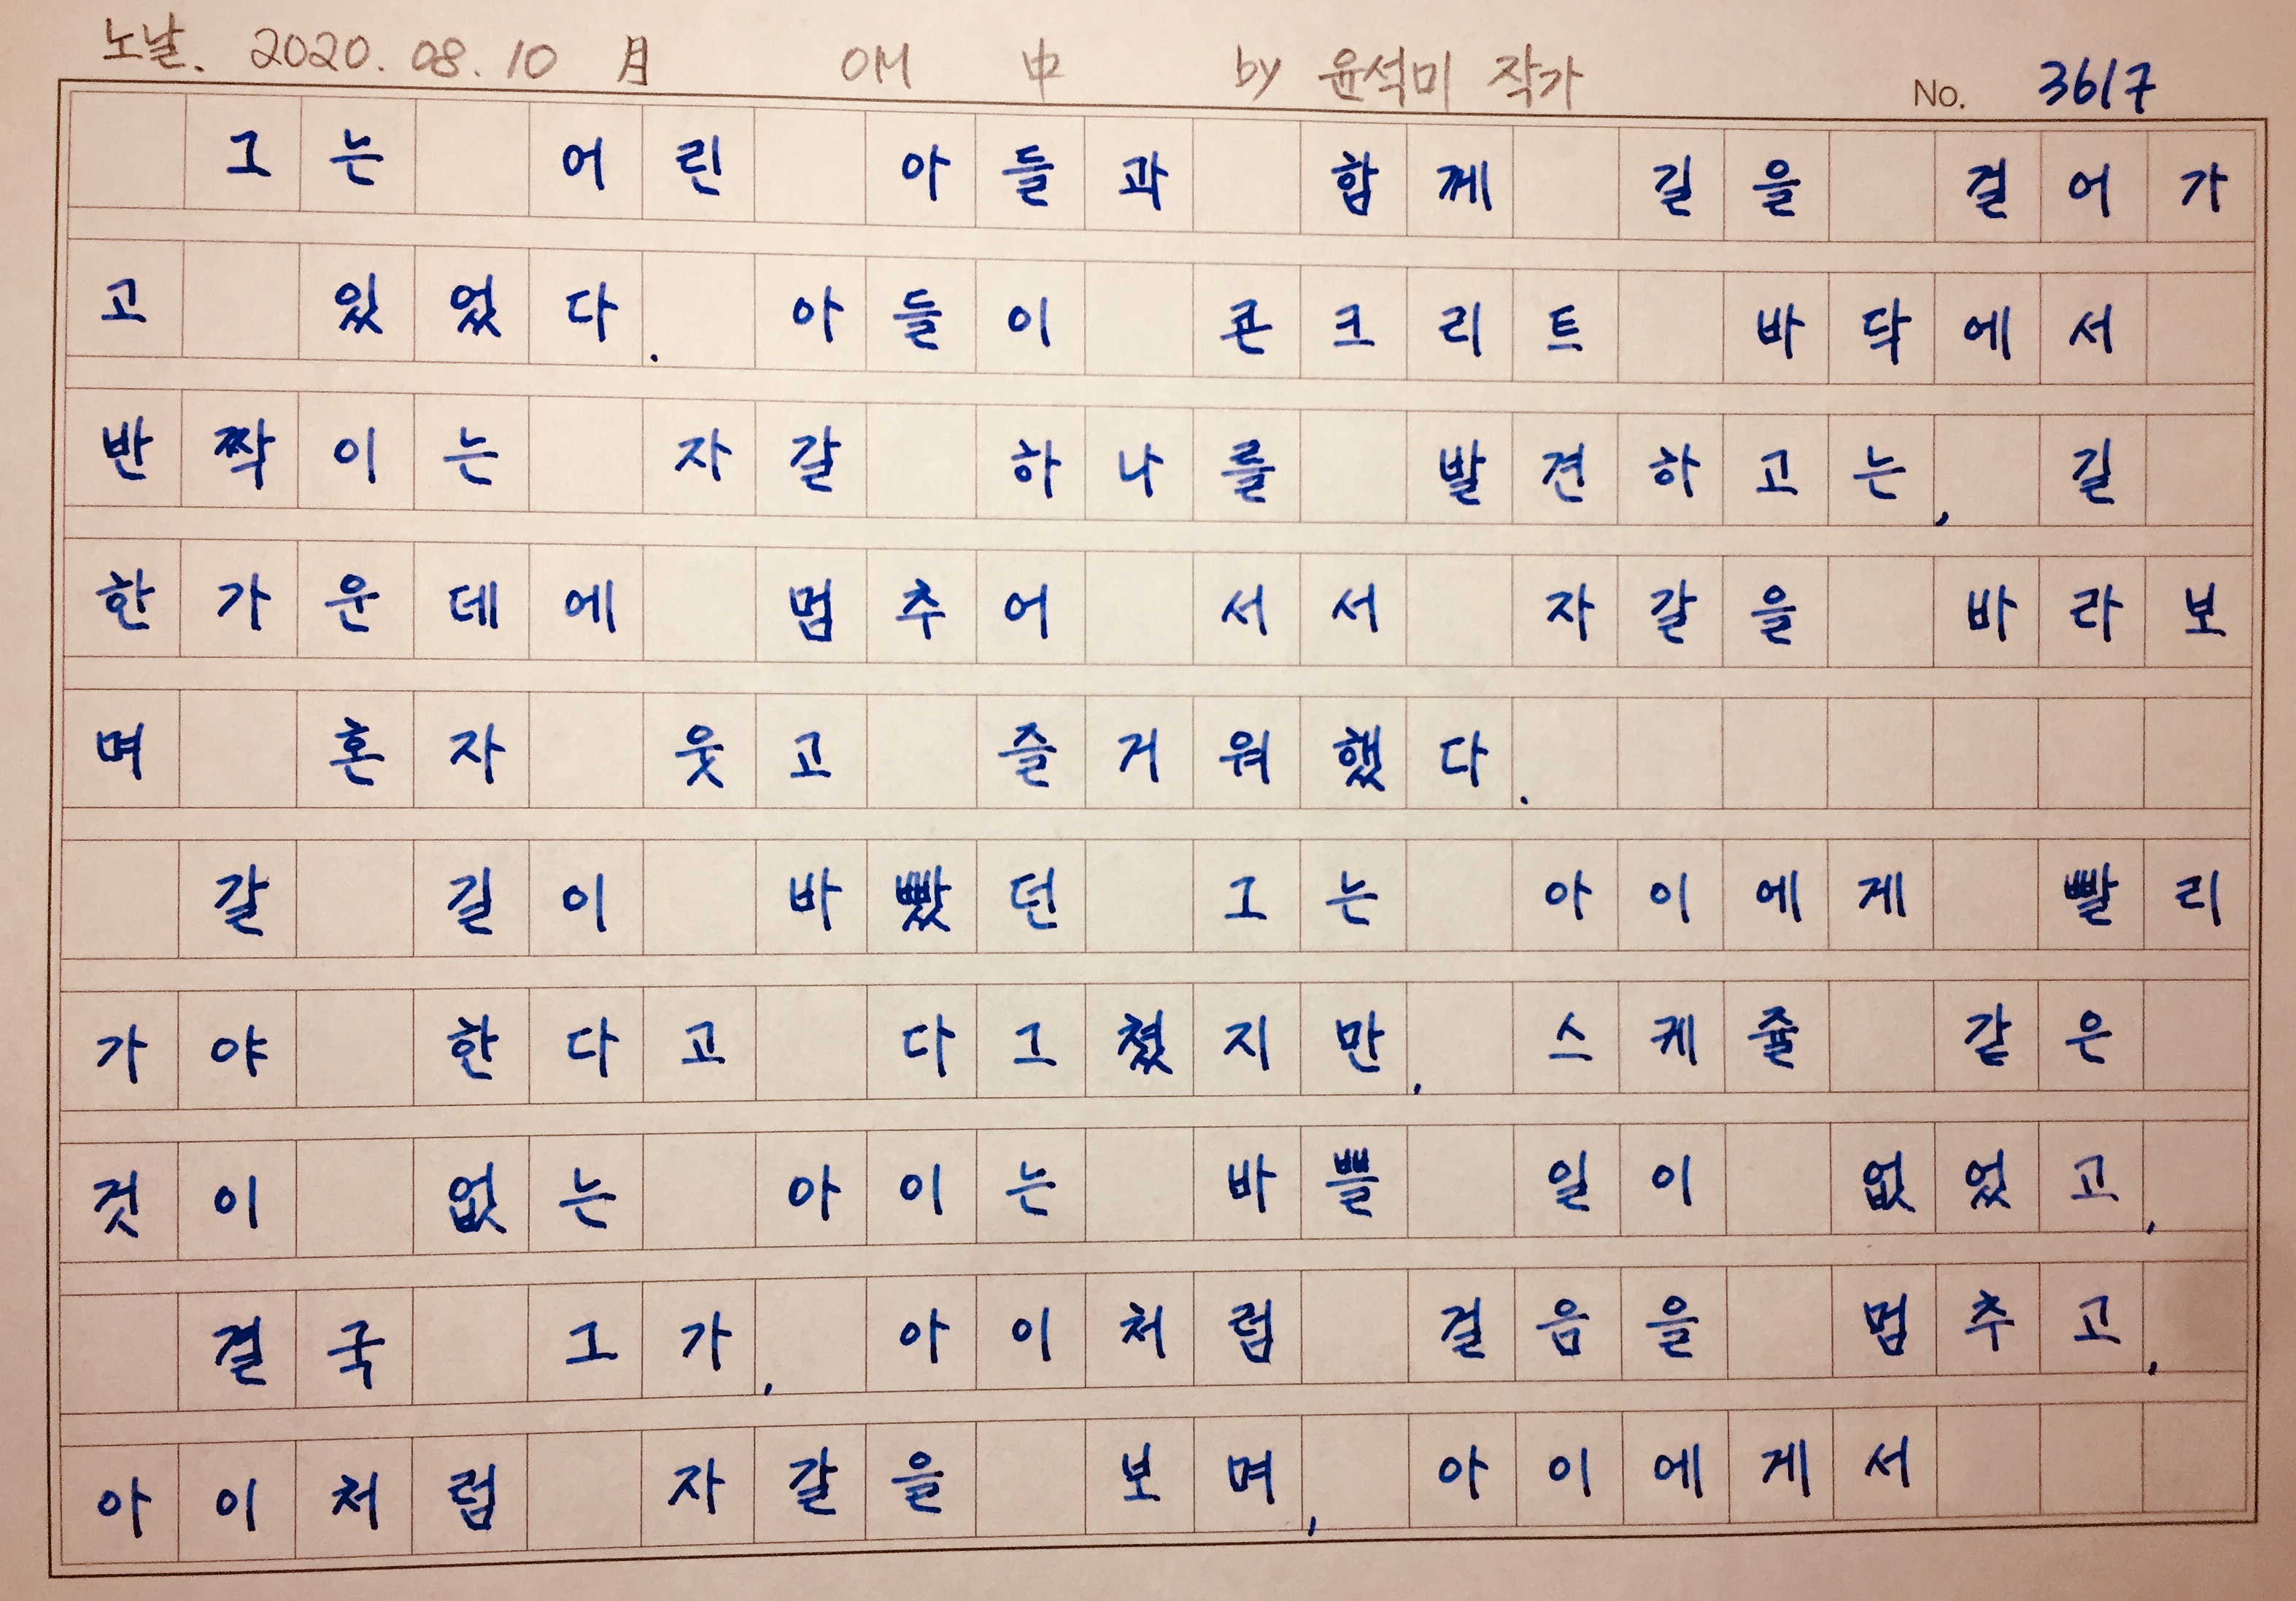 노날. 2020. 08. 10 月 OM 中 by 윤석미 작가
No. 3617
그는 어린 아들과 함께 길을 걸어가
고 있었다. 아들이 콘크리트 바닥에서
반짝이는 자갈 하나를 발견하고는, 길
한가운데에 멈추어 서서 자갈을 바라보
며 혼자 웃고 즐거워했다.
갈 길이 바빴던 그는 아이에게 빨리
가야 한다고 다그쳤지만, 스케줄 같은
것이 없는 아이는 바쁠 일이 없었고,
결국 그가, 아이처럼 걸음을 멈추고,
아이처럼 자갈을 보며, 아이에게서